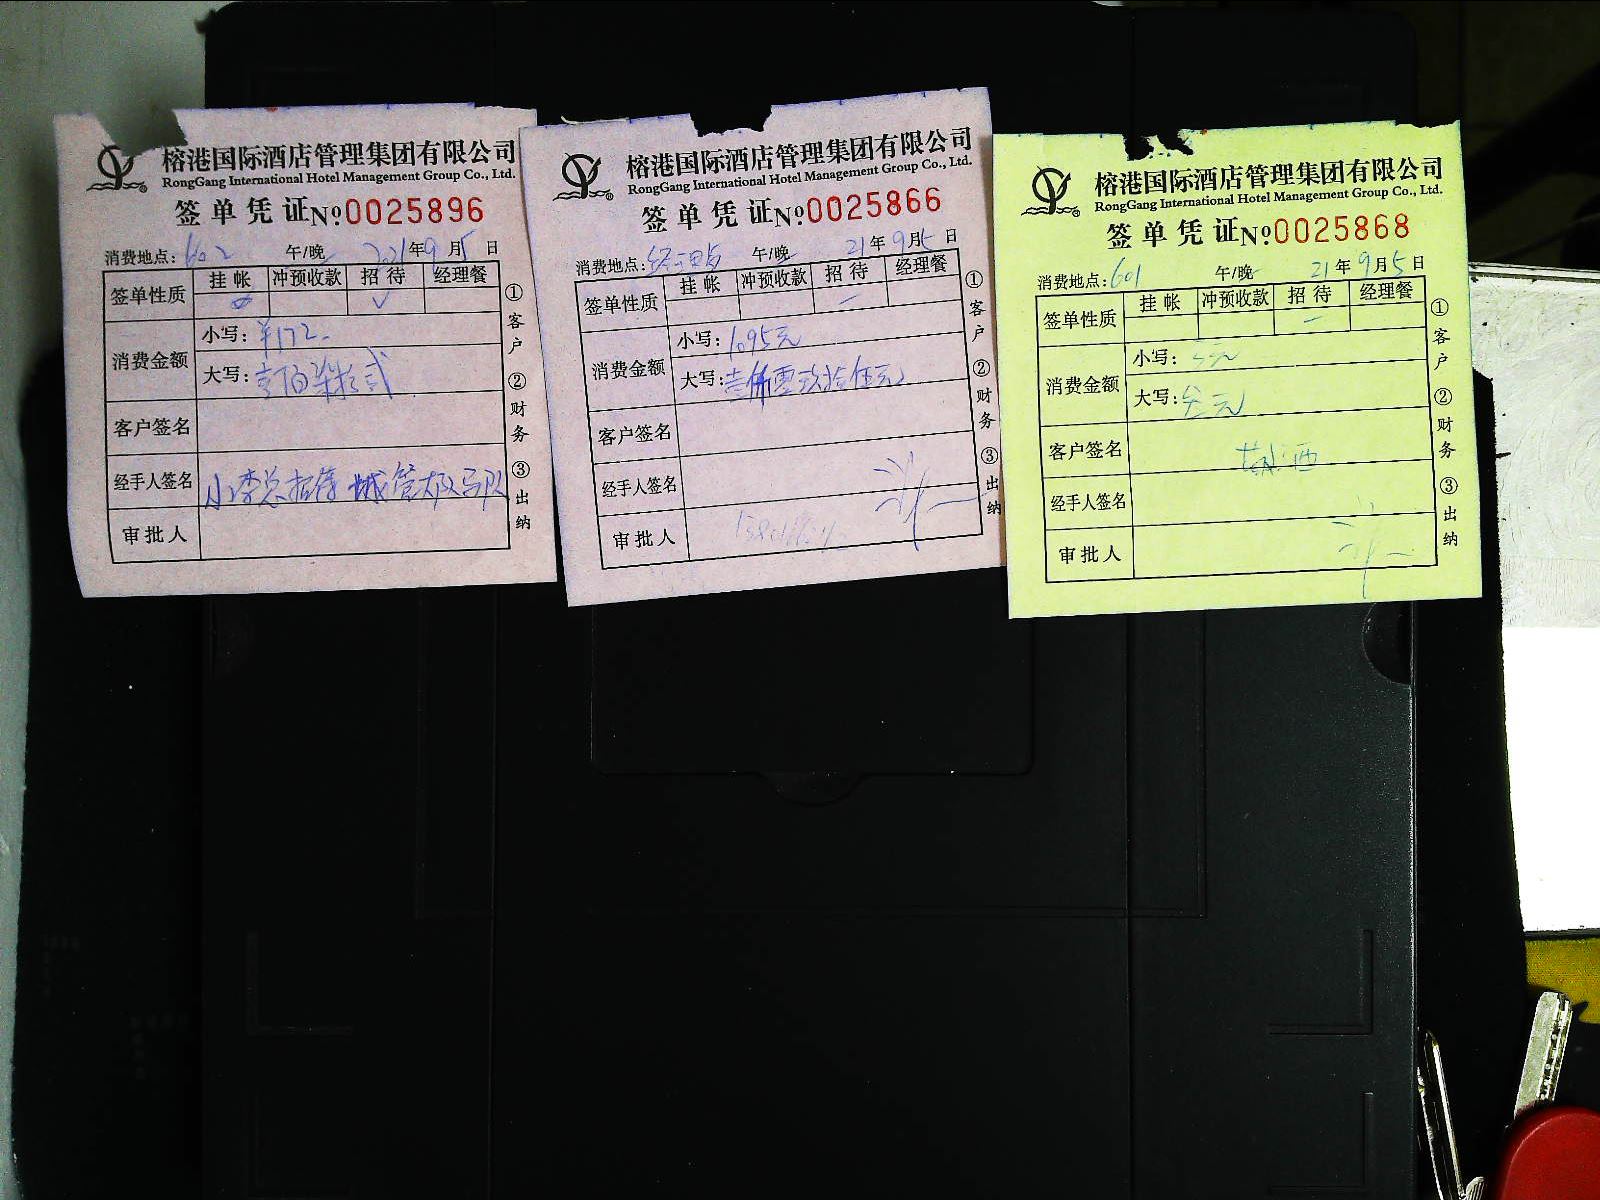 榕港国际酒店管理集团有限公司
RongGang International Hotel Management Group Co., Ltd.
签单凭证 №0025896
消费地点: 602 午/晚 2021年9月5日
签单性质 挂帐 冲预收款 招待 经理餐
消费金额
小写: ¥172.
大写: 壹佰柒拾贰
客户签名
经手人签名 小李总推荐 城管大队马队
审批人
①客户 ②财务 ③出纳
榕港国际酒店管理集团有限公司
RongGang International Hotel Management Group Co., Ltd.
签单凭证 №0025866
消费地点: 午/晚 21年9月5日
签单性质 挂帐 冲预收款 招待 经理餐
消费金额
小写: 1095元
大写: 壹仟零玖拾伍元
客户签名
经手人签名
审批人
①客户 ②财务 ③出纳
榕港国际酒店管理集团有限公司
RongGang International Hotel Management Group Co., Ltd.
签单凭证 №0025868
消费地点: 601 午/晚 21年9月5日
签单性质 挂帐 冲预收款 招待 经理餐
消费金额
小写:
大写:
客户签名
经手人签名
审批人
①客户 ②财务 ③出纳